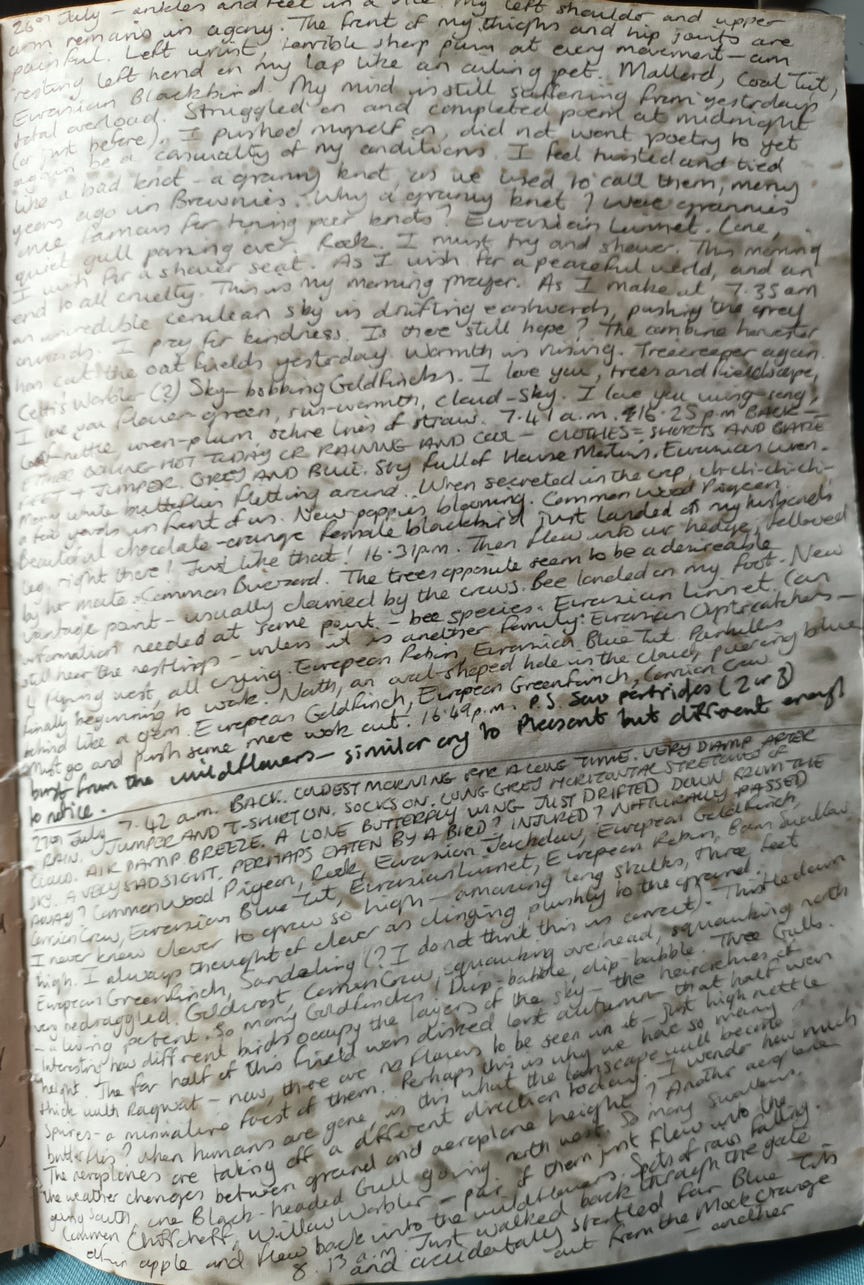 26th July – ankles and feet in a vice. My left shoulder and upper
arm remains in agony. The front of my thighs and hip joints are
painful. Left wrist, terrible sharp pain at every movement – am
resting left hand in my lap like an ailing pet. Mallard, Coal Tit,
Eurasian Blackbird. My mind is still suffering from yesterdays
total overload. Struggled on and completed poem at midnight
(or just before). I pushed myself on, did not want poetry to yet
again be a casualty of my conditions. I feel twisted and tied
like a bad knot – a granny knot, as we used to call them, many
years ago in Brownies. Why a granny knot? Were grannies
once famous for tying poor knots? Eurasian Linnet. Lone,
quiet gull passing over. Rook. I must try and shower. This morning
I wish for a shower seat. As I wish for a peaceful world, and an
end to all cruelty. This is my morning prayer. As I make it, 7.35am
an incredible cerulean sky is drifting eastwards, pushing the grey
onwards. I pray for kindness. Is there still hope? The combine harvester
has cut the oat fields yesterday. Warmth is rising. Treecreeper again.
Cetti's Warbler (?) Sky-bobbing Goldfinches. I love you, trees and fieldscape,
I love you flower-green, sun-warmth, cloud-sky. I love you wing-song,
nettle, wren-plum, ochre lines of straw. 7.41 a.m. 16.25pm BACK –
BOILING HOT TODAY OR RAINING AND COOL – CLOTHES = SHORTS AND BARE
FEET + JUMPER. GREY AND BLUE. Sky full of House Martins, Eurasian Wren.
Many white butterflies flitting around. When secreted in the crop, ch-chi-chi-chi-
a few yards in front of us. New poppies blooming. Common Wood Pigeon.
Beautiful chocolate-orange female blackbird just landed on my husbands
leg, right there! Just like that! 16.31pm. Then flew into our hedge, followed
by her mate. Common Buzzard. The trees opposite seem to be a desireable
vantage point – usually claimed by the crows. Bee landed on my foot. New
information needed at some point – bee species. Eurasian Linnet. Can
still hear the nestlings – unless it is another family. Eurasian Oystercatchers –
4 flying west, all crying. European Robin, Eurasian Blue Tit. Painkillers
finally beginning to work. North, an oval-shaped hole in the cloud, piercing blue
behind like a gem. European Goldfinch, European Greenfinch, Carrion Crow
Must go and push some more work out. 16.49p.m. P.S. Saw partridges (2 or 3)
burst from the wildflowers – similar cry to Pheasant but different enough
to notice.
27th July 7.42 a.m. BACK. COLDEST MORNING FOR A LONG TIME. VERY DAMP AFTER
RAIN. JUMPER AND T-SHIRT ON. SOCKS ON. LONG GREY HORIZONTAL STRETCHES OF
CLOUD. AIR DAMP BREEZE. A LONE BUTTERFLY WING JUST DRIFTED DOWN FROM THE
SKY. A VERY SAD SIGHT. PERHAPS EATEN BY A BIRD? INJURED? NATURALLY PASSED
AWAY? Common Wood Pigeon, Rook, Eurasian Jackdaw, European Goldfinch,
Carrion Crow, Eurasian Blue Tit, Eurasian Linnet, European Robin, Barn Swallow
I never knew clover to grow so high – amazing long stalks, three feet
high. I always thought of clover as clinging plushly to the ground.
European Greenfinch, Sanderling (? I do not think this is correct). Thistledown
very bedraggled. Goldcrest, Carrion Crow, squawking overhead, squawking north
– living patent. So many Goldfinches! Dip-babble, dip-babble. Three Gulls.
Interesting how different birds occupy the layers of the sky – the heirarchies of
height. The far half of this field was disked last autumn – that half was
thick with Ragwort – now, there are no flowers to be seen in it – just high nettle
spires – a miniature forest of them. Perhaps this is why we have so many
butterflies? When humans are gone, is this what the landscape will become?
The aeroplanes are taking off a different direction today. I wonder how much
the weather changes between ground and aeroplane height? Another aeroplane
going south, one Black-headed Gull going north west. So many Swallows.
Common Chiffchaff, Willow Warbler – pair of them just flew into the
apple and flew back into the wildflowers. Spots of rain falling.
8.13 a.m. Just walked back through the gate
and accidentally startled four Blue Tits
out from the Mock Orange
– another